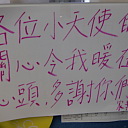 各位小天使的
關心令我暖在
心頭,多謝你們